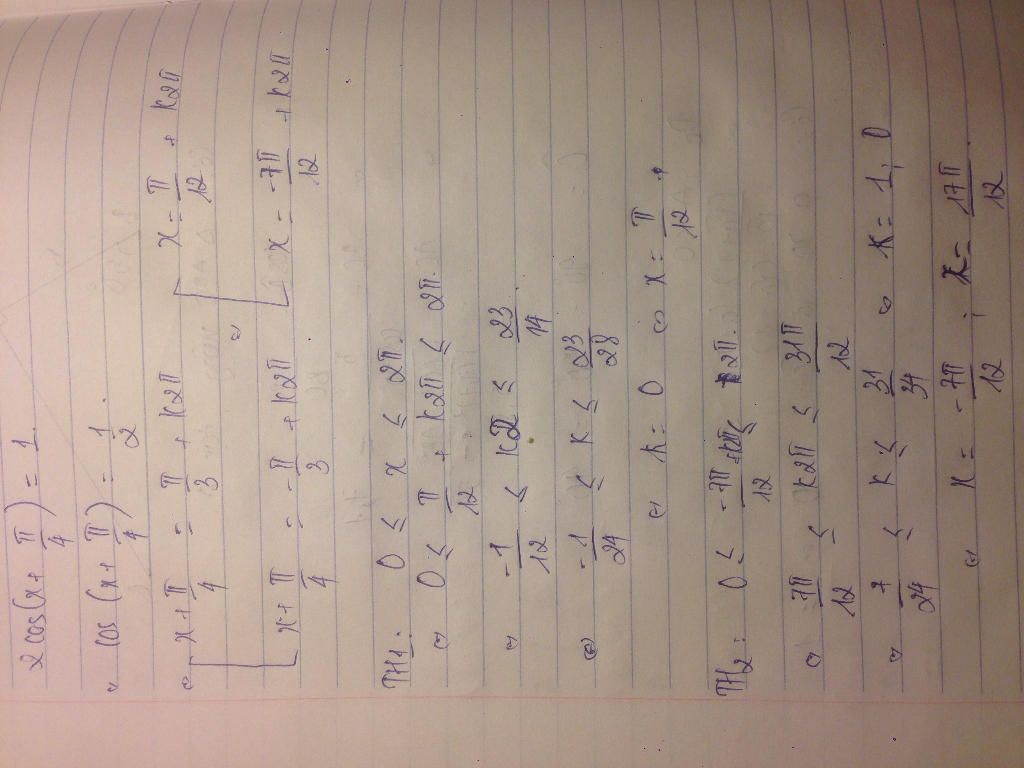 2cos(x + π/4) = 1
⇔ cos(x + π/4) = 1/2.
⇔ [ x + π/4 = π/3 + k2π ⇔ [ x = π/12 + k2π
x + π/4 = -π/3 + k2π x = -7π/12 + k2π
TH1: 0 ≤ x ≤ 2π.
⇔ 0 ≤ π/12 + k2π ≤ 2π.
⇔ -1/12 ≤ k2 ≤ 23/14
⇔ -1/24 ≤ k ≤ 23/28
⇔ k = 0 ⇔ x = π/12.
TH2: 0 ≤ -7π/12 + k2π ≤ 2π.
⇔ 7π/12 ≤ k2π ≤ 31π/12
⇔ 7/24 ≤ k ≤ 31/34 ⇔ k = 1, 0
⇔ x = -7π/12 ; x = 17π/12.